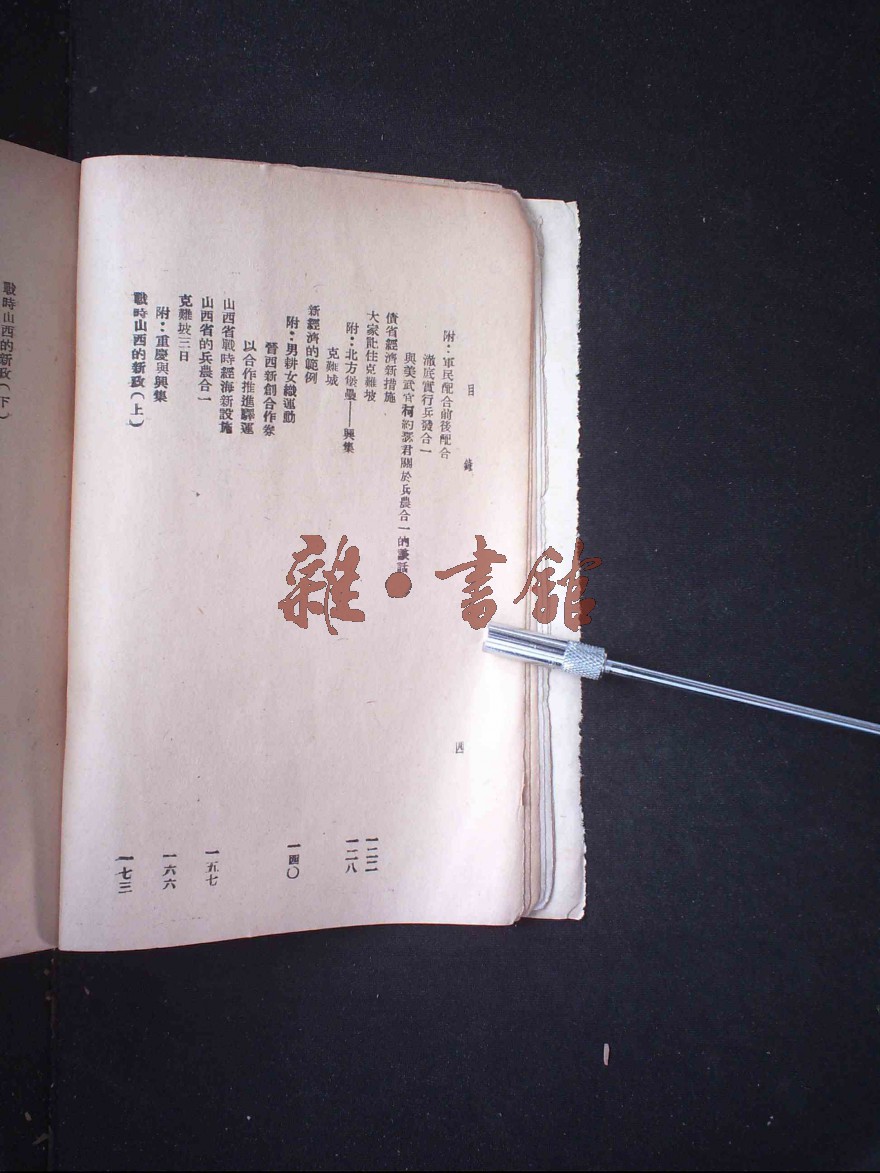 目錄
附：軍民配合前後配合
澈底實行兵發合一
與美武官柯約瑟君關於兵農合一的談話
償省經濟新措施 一二二
大家訨住克難坡 一二八
附：北方堡壘——興集
克難城
新經濟的範例 一四〇
附：男耕女織運動
晉西新創合作券
以合作推進驛運
山西省戰時經海新設施
山西省的兵農合一 一五七
克難坡三日 一六六
附：重慶與興集
戰時山西的新政（上） 一七三
四
戰時山西的新政（下）
雜·書館